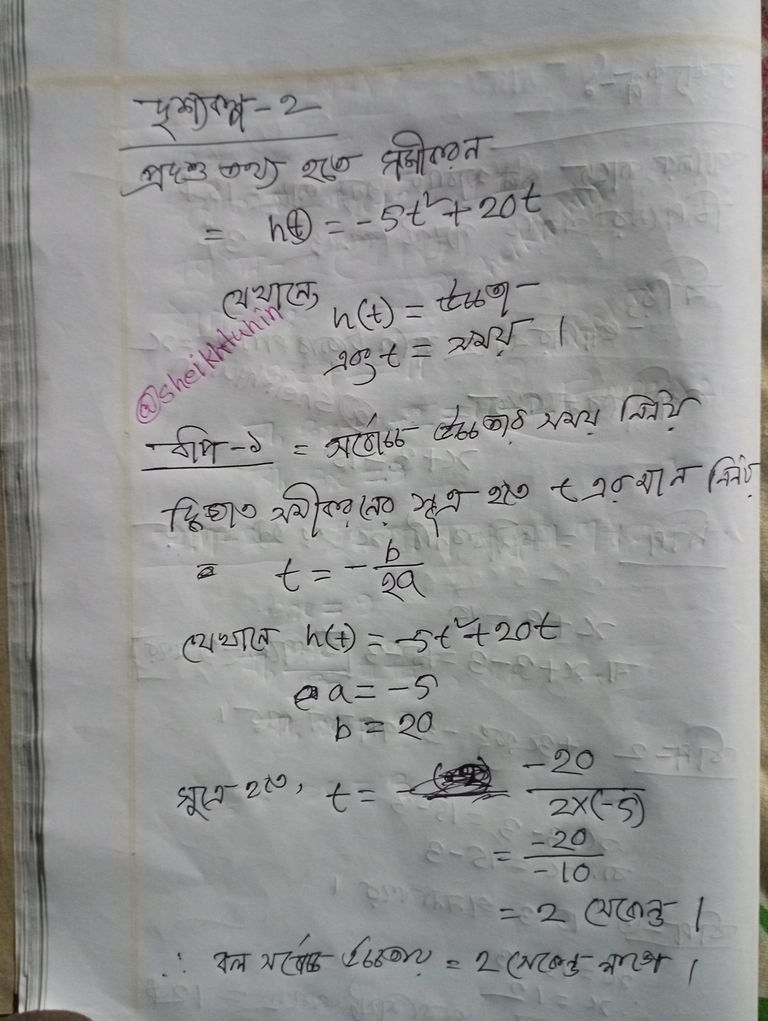 দৃশ্যকল্প - ২
প্রদত্ত তথ্য হতে সমীকরন
= h(t) = -5t² + 20t
যেখানে
h(t) = উচ্চতা
এবং t = সময় ।
@sheikhtuhin
ধাপ - ১ = সর্বোচ্চ উচ্চতার সময় নির্নয়
দ্বিঘাত সমীকরনের সূত্র হতে t এর মান নির্নয়
= t = - b/2a
যেখানে h(t) = -5t² + 20t
a = -5
b = 20
সূত্র হতে, t = -20 / 2×(-5)
= -20 / -10
= 2 সেকেন্ড ।
∴ বল সর্বোচ্চ উচ্চতায় = 2 সেকেন্ড লাগে ।